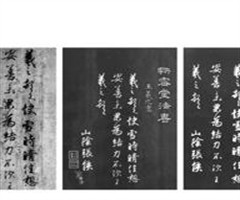 羲之頓首快雪時晴佳想
安善未果為結力不次
快雪堂法書
羲之頓首快雪時晴佳想
安善未果為結力不次
羲之頓首
山陰張侯
羲之頓首快雪時晴佳想
安善未果為結力不次
羲之頓首
山陰張侯